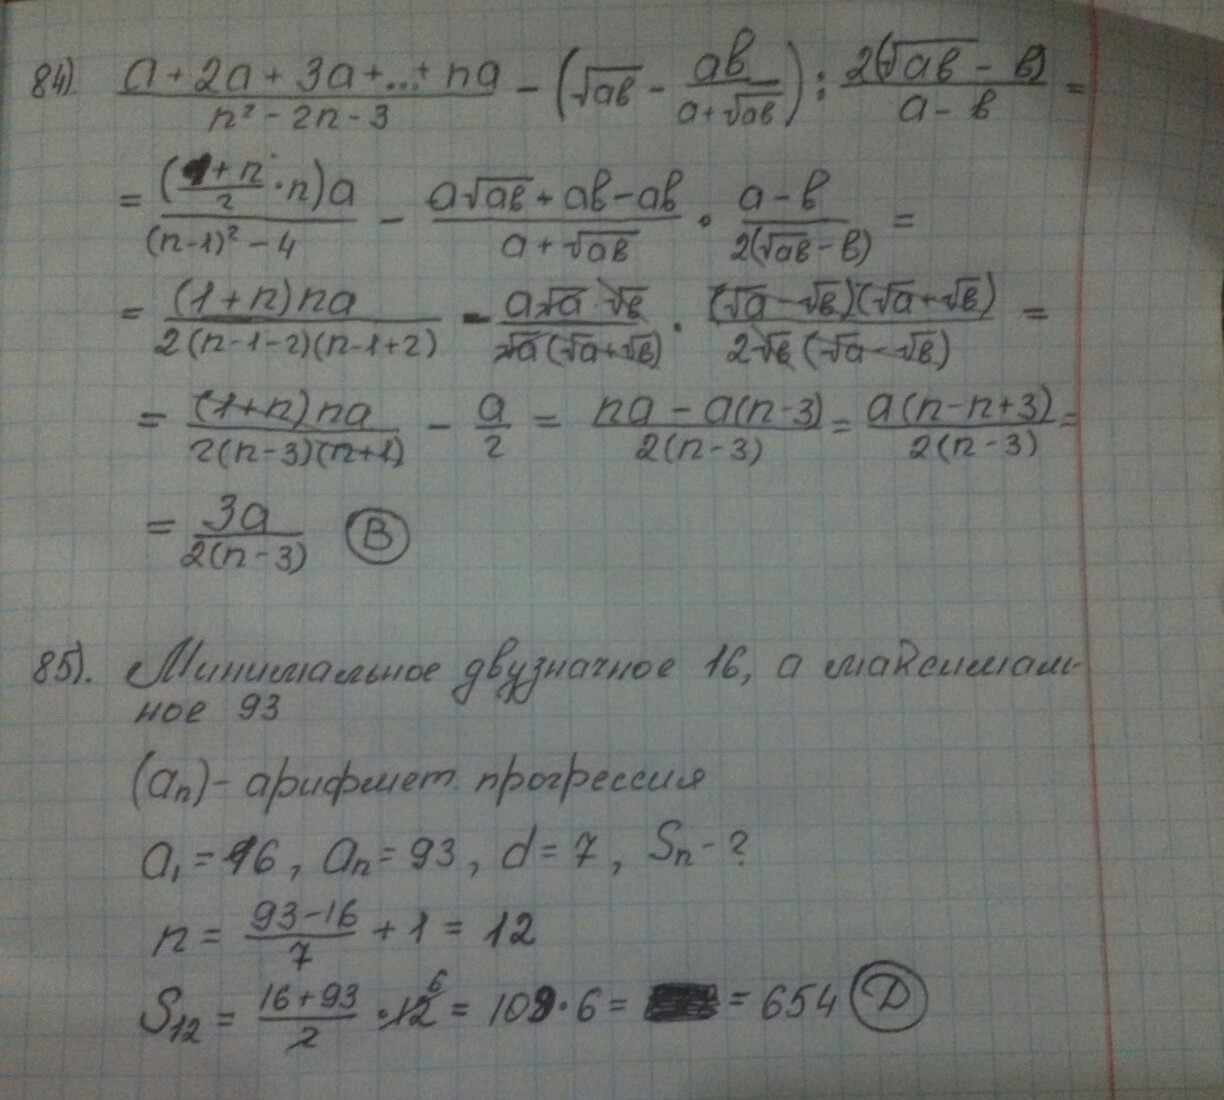 84). (a + 2a + 3a + ... + na)/(n² - 2n - 3) - (√ab - ab/(a + √ab)) : 2(√ab - b)/(a - b) =
= ((1 + n)/2 · n)a/((n-1)² - 4) - (a√ab + ab - ab)/(a + √ab) · (a - b)/(2(√ab - b)) =
= (1 + n)na/(2(n-1-2)(n-1+2)) - (a√a · √b)/(√a(√a + √b)) · (√a - √b)(√a + √b)/(2√b(√a - √b)) =
= (1+n)na/(2(n-3)(n+1)) - a/2 = (na - a(n-3))/(2(n-3)) = a(n-n+3)/(2(n-3)) =
= 3a/(2(n-3)) B
85). Минимальное двузначное 16, а максималь-
ное 93
(aₙ) - арифмет. прогрессия
a₁ = 16, aₙ = 93, d = 7, Sₙ - ?
n = (93-16)/7 + 1 = 12
S₁₂ = (16+93)/2 · 12 6 = 109 · 6 = = 654 D